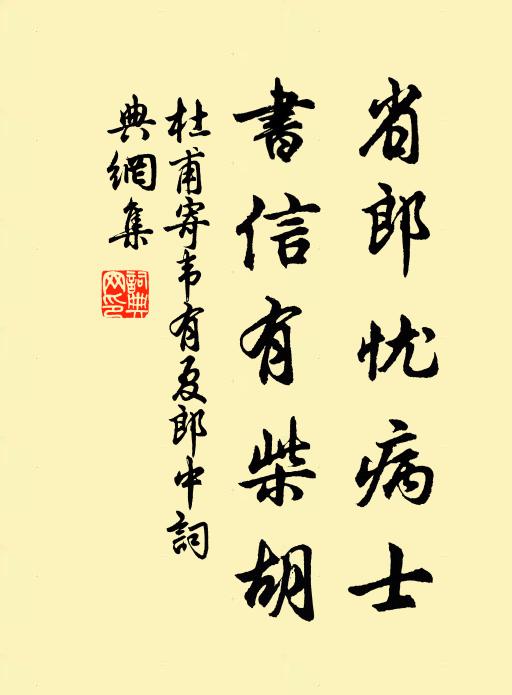 省郎忧病士
書信有柴胡
杜甫寄韦有夏郎中詞
典網集
詞典
网印